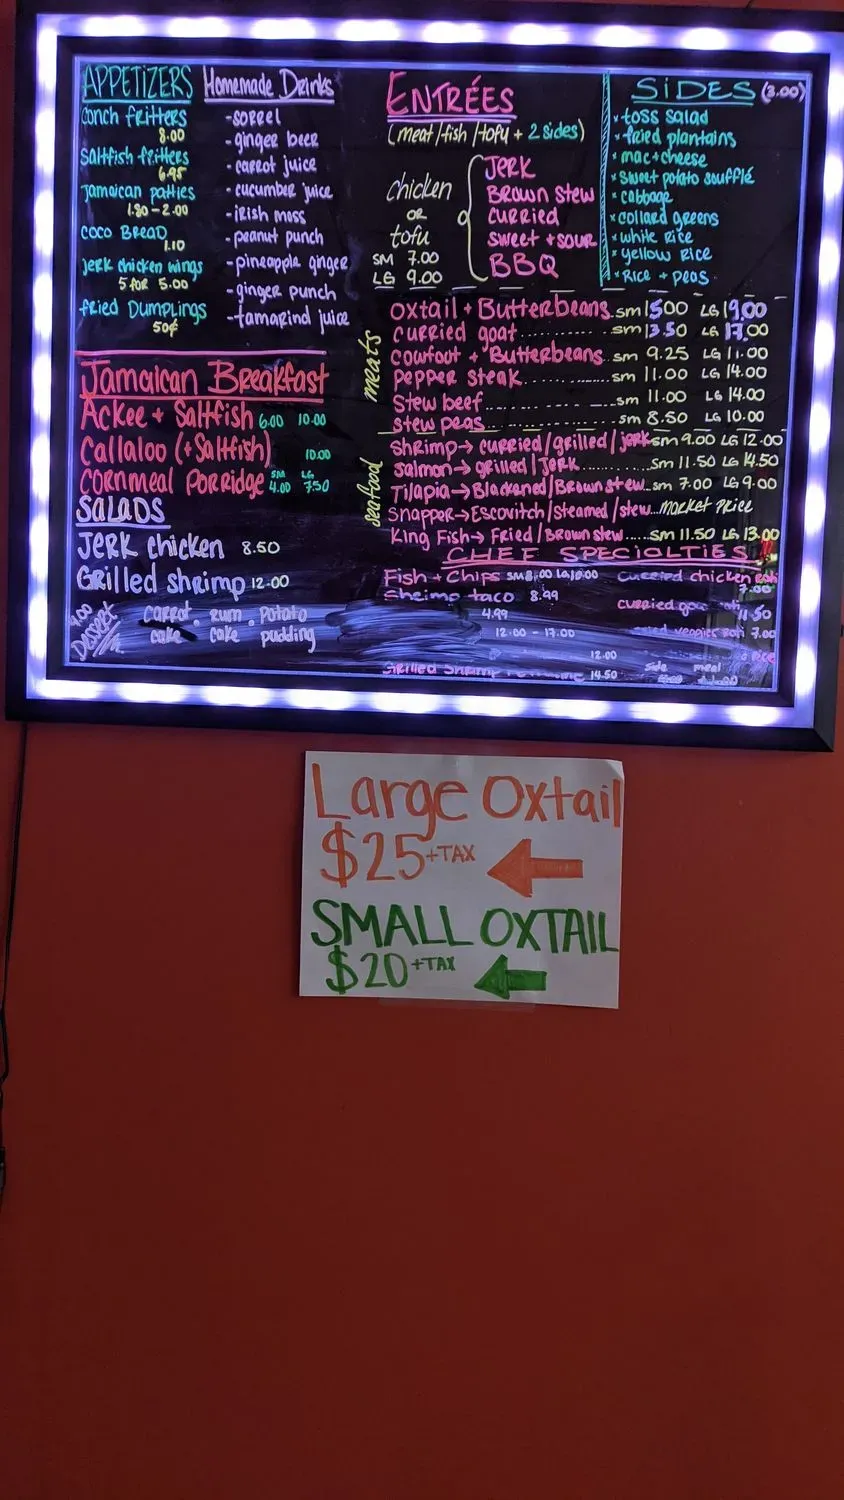 APPETIZERS
Conch fritters
8.00
Saltfish fritters
6.95
Jamaican patties
1.80 - 2.00
COCO BREAD
1.10
Jerk chicken wings
5 for 5.00
fried Dumplings
50¢
Homemade Drinks
-sorrel
-ginger beer
-carrot juice
-cucumber juice
-irish moss
-peanut punch
-pineapple ginger
-ginger punch
-tamarind juice
Jamaican Breakfast
Ackee + Saltfish 6.00 10.00
Callaloo (+Saltfish) 10.00
Cornmeal Porridge SM 4.00 LG 7.50
SALADS
Jerk chicken 8.50
Grilled shrimp 12.00
4.00 Dessert
carrot cake • rum cake • potato pudding
ENTRÉES
(meat/fish/tofu + 2 sides)
chicken
OR
tofu
SM 7.00
LG 9.00
Jerk
Brown stew
curried
sweet + sour
BBQ
SIDES (3.00)
toss salad
fried plantains
mac+cheese
sweet potato soufflé
cabbage
collard greens
white Rice
yellow Rice
Rice + peas
meats
oxtail + Butterbeans sm 15.00 LG 19.00
curried goat sm 13.50 LG 17.00
cowfoot + Butterbeans sm 9.25 LG 11.00
pepper steak sm 11.00 LG 14.00
Stew beef sm 11.00 LG 14.00
stew peas sm 8.50 LG 10.00
seafood
shrimp→ curried/grilled/jerk sm 9.00 LG 12.00
salmon→ grilled/Jerk sm 11.50 LG 14.50
Tilapia→ Blackened/Brown stew sm 7.00 LG 9.00
Snapper→ Escovitch/steamed/stew...market price
King Fish→ Fried/Brown stew sm 11.50 LG 13.00
CHEF SPECIALTIES
Fish + Chips SM 8.00 LG 10.00
Shrimp taco 8.99
4.99
12.00 - 17.00
12.00
Grilled Shrimp
14.50
curried chicken roti
7.00
curried goat roti
veggies roti 7.00
side meal
Large Oxtail
$25 +TAX
SMALL OXTAIL
$20 +TAX